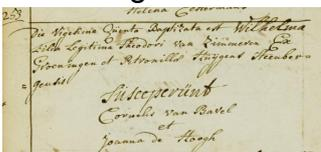 Helena
253
Die Vigesima Quinta Baptizata est Wilhelma
filia Legitima Theodori Van Zimmeren Ex
Groeningen et Petronilla Huygens Steenber=
=gensis
Susceperünt
Cornelis van Bavel
et
Joanna de Hoogh